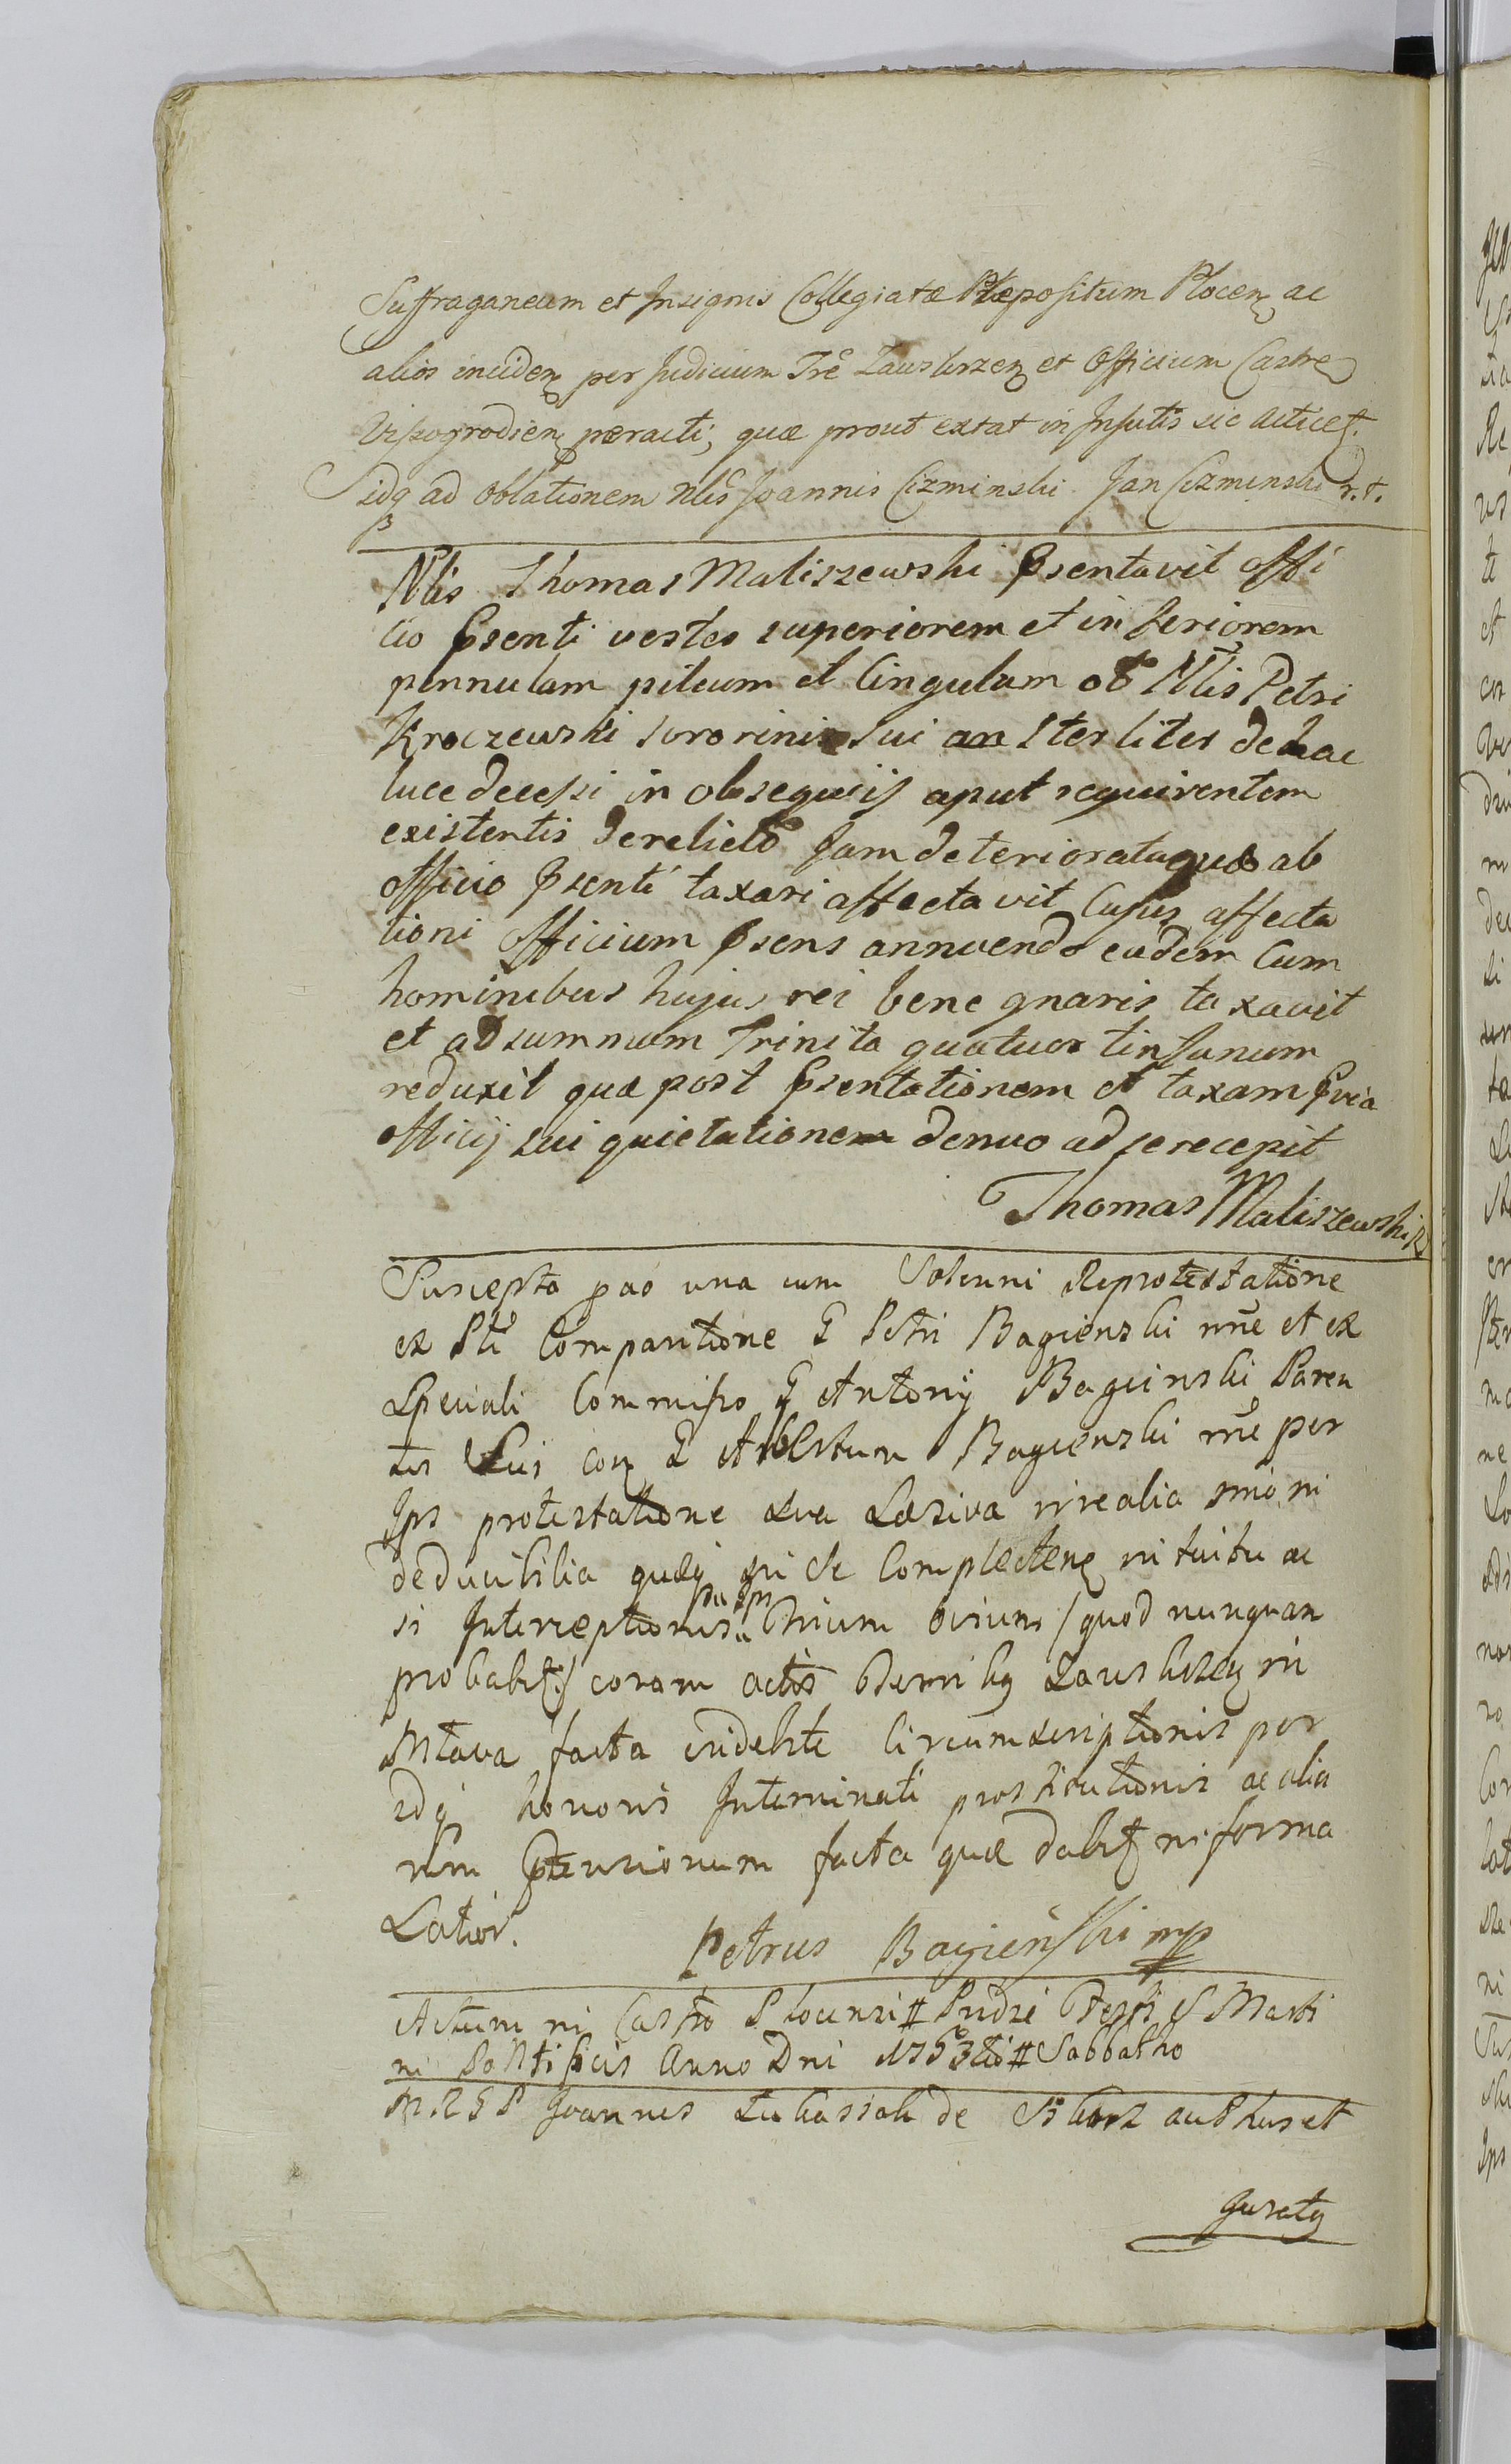 Suffraganeum et Insignis Collegiatæ Præpositum Plocen ac
alios inciden per Judicium Tre Zawskrzen et Officium Castren
Viszogrodien peracti; quæ prout extat in Insutis sic acticet.
idq ad Oblationem Nlis Joannis Cizminski Jan Cizminski
Nlis Thomas Maliszewski Psentavit offi
cio Psenti vestes superiorem et inferiorem
pennulam pileum et Cingulum Nlis Petri
Kroczewski sororini sui an Sterliter de hac
luce decessi in obsequiis aput requirentem
existentis derelicto Jam deteriorata quæ ab
officio Psenti taxari affectavit Cujus affecta
tioni officium Psens annuendo eadem Cum
hominibus hujus rei bene gnaris taxavit
et ad summam Trinita quatuor tinfonum
reduxit quæ post Psentationem et taxam Pvia
officij sui quietationem denuo ad se recepit
Thomas Maliszewski
Suscepta pao una cum Solenni Reprotestatione
ex Pli Comparitione G Petri Bagienski nne et ex
Speciali Commisso G Antonij Bagienski Paren
tis Sui con G Bagienski nne per
Ips protestatione sua Læsiva
deducibilia quæq in se Complecten intuitu ac
si Interreptionis Ovium ovium /quod nunquam
probabit/ coram actis Zawskrzen in
Mlava facta indebite Circumscriptionis per
idq honoris Interminati prostitutionis ac alia
rum facta quæ dabit in forma
Latior.
Petrus Bagieński mp
Actum in Castro Plocensi # Pridie Festi S Marti
ni Pontificis Anno Dni 1753tio # Sabbatho
M R G P Joannes Lubassoh de authus et
Juratq